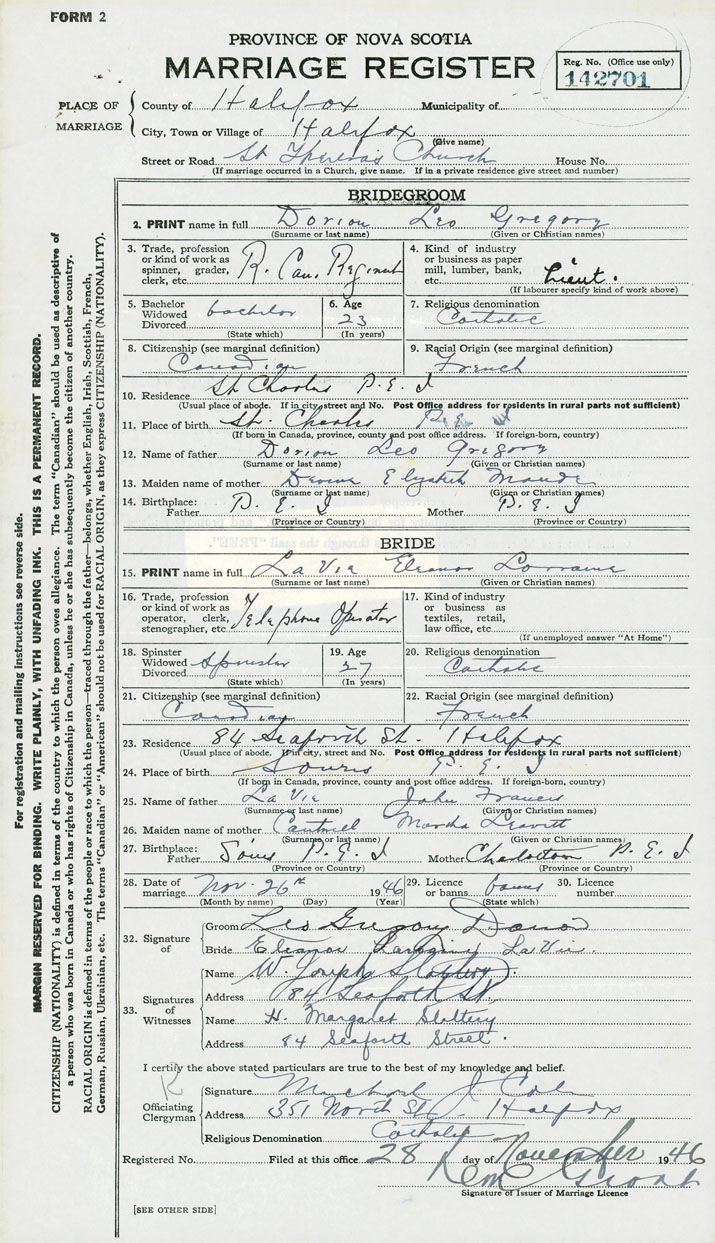 FORM 2
PROVINCE OF NOVA SCOTIA
MARRIAGE REGISTER
Reg. No. (Office use only)
142701
PLACE OF MARRIAGE
County of Halifax Municipality of
City, Town or Village of Halifax
(Give name)
Street or Road St Theresa's Church House No.
(If marriage occurred in a Church, give name. If in a private residence give street and number)
BRIDEGROOM
2. PRINT name in full Dorion Leo Gregory
(Surname or last name) (Given or Christian names)
3. Trade, profession or kind of work as spinner, grader, clerk, etc. R. Can. Regiment
4. Kind of industry or business as paper mill, lumber, bank, etc. Lieut.
(If labourer specify kind of work above)
5. Bachelor Widowed Divorced bachelor
(State which)
6. Age 23
(In years)
7. Religious denomination Catholic
8. Citizenship (see marginal definition) Canadian
9. Racial Origin (see marginal definition) French
10. Residence St Charles P.E.I
(Usual place of abode. If in city, street and No. Post Office address for residents in rural parts not sufficient)
11. Place of birth St. Charles P.E.I
(If born in Canada, province, county and post office address. If foreign-born, country)
12. Name of father Dorion Leo Gregory
(Surname or last name) (Given or Christian names)
13. Maiden name of mother Elizabeth Maude
(Surname or last name) (Given or Christian names)
14. Birthplace: Father P.E.I Mother P.E.I
(Province or Country) (Province or Country)
BRIDE
15. PRINT name in full La Vie Eleanor Lorraine
(Surname or last name) (Given or Christian names)
16. Trade, profession or kind of work as operator, clerk, stenographer, etc. Telephone Operator
17. Kind of industry or business as textiles, retail, law office, etc.
(If unemployed answer "At Home")
18. Spinster Widowed Divorced Spinster
(State which)
19. Age 27
(In years)
20. Religious denomination Catholic
21. Citizenship (see marginal definition) Canadian
22. Racial Origin (see marginal definition) French
23. Residence 84 Seaforth St. Halifax
(Usual place of abode. If in city, street and No. Post Office address for residents in rural parts not sufficient)
24. Place of birth Souris P.E.I
(If born in Canada, province, county and post office address. If foreign-born, country)
25. Name of father La Vie John Francis
(Surname or last name) (Given or Christian names)
26. Maiden name of mother Cantwell Martha Leavitt
(Surname or last name) (Given or Christian names)
27. Birthplace: Father Souris P.E.I Mother Charlottetown P.E.I
(Province or Country) (Province or Country)
28. Date of marriage Nov. 26th 1946
(Month by name) (Day) (Year)
29. Licence or banns banns
(State which)
30. Licence number
32. Signature of
Groom Leo Gregory Dorion
Bride Eleanor Lorraine LaVie
33. Signatures of Witnesses
Name W. Joseph Slattery
Address 84 Seaforth St.
Name H. Margaret Slattery
Address 84 Seaforth Street.
I certify the above stated particulars are true to the best of my knowledge and belief.
Officiating Clergyman
Signature Michael J.
Address 351 North St. Halifax
Religious Denomination Catholic
Registered No. Filed at this office 28 day of November 1946
Signature of Issuer of Marriage Licence
[SEE OTHER SIDE]
For registration and mailing instructions see reverse side.
MARGIN RESERVED FOR BINDING. WRITE PLAINLY, WITH UNFADING INK. THIS IS A PERMANENT RECORD.
CITIZENSHIP (NATIONALITY) is defined in terms of the country to which the person owes allegiance. The term "Canadian" should be used as descriptive of
a person who was born in Canada or who has rights of Citizenship in Canada, unless he or she has subsequently become the citizen of another country.
RACIAL ORIGIN is defined in terms of the people or race to which the person—traced through the father—belongs, whether English, Irish, Scottish, French,
German, Russian, Ukrainian, etc. The terms "Canadian" or "American" should not be used for RACIAL ORIGIN, as they express CITIZENSHIP (NATIONALITY).